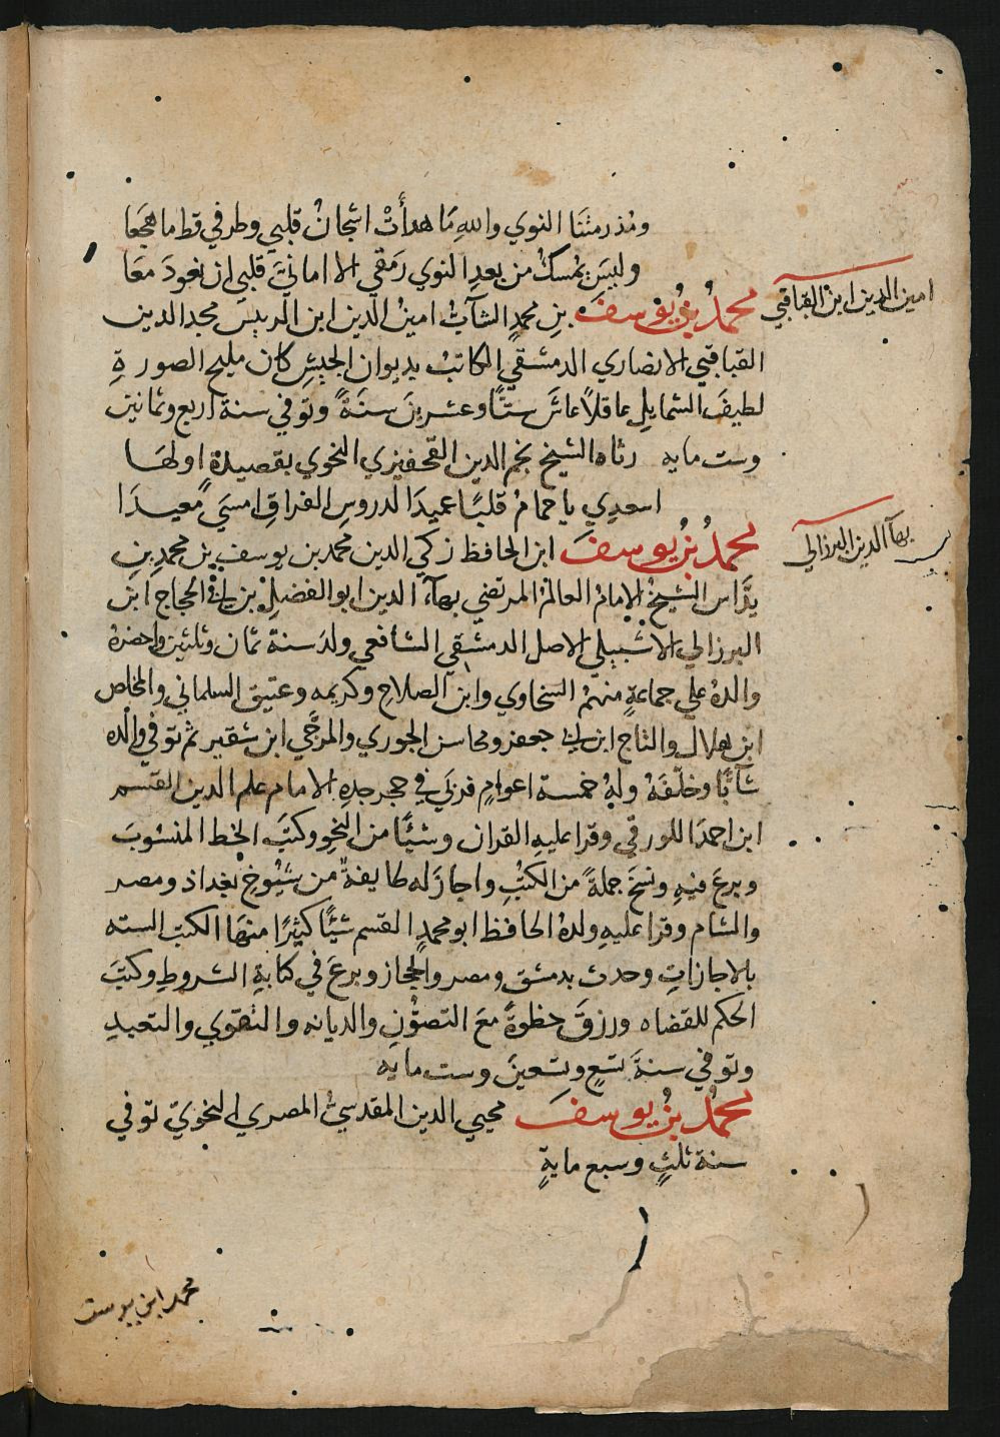 ومُذ رمتنَا النوي واللهِ مَا هدأَتْ اشجانُ قلبي وطرفي قط ما هجَعا
وليسَ يمْسكُ من بعدِ النوي رمَقي الا امانيَّ قلبي ان نعودَ معَا
امين الدين ابن القباقبي
محمدُ بنُ يوسفَ بنِ محمدٍ الشآبُّ امينُ الدين ابن الرييس مجد الدين
القباقبي الانصاري الدمشقي الكاتبُ بديوان الجيشِ كان مليح الصورةِ
لطيفَ الشمايلِ عاقلاً عاشَ ستًّا وعشرينَ سنَةً وتوفي سنة اربع وثمانين
وست مايه رثاه الشيخ نجم الدين القحفيزي النحوي بقصيدةٍ اولهَا
اسعدِي يا حمامُ قلبًا عميدَا لدروسِ الفراقِ امسَي مُعيدَا
بهآ الدين البرزالي
محمدُ بنُ يوسفَ ابن الحافظ زكي الدين محمد بن يوسف بن محمدِ بنِ
يدَّاس الشيخُ الإمامُ العالمُ المرتضي بهآء الدين ابو الفضلِ بن ابي الحجاج ابن
البرزالي الاشبيلي الاصل الدمشقي الشافعي ولدَ سنة ثمان وثلثين واحضرهُ
والدهُ علي جماعةٍ منهمُ السخاوي وابن الصلاح وكريمه وعتيق السلماني والمخلص
ابن هلال والتاج ابن ابي جعفر ومحاسن الجوري والمرجَّي ابن شقير ثم توفي والده
شآبًّا وخلّفهُ ولهُ خمسة اعوامٍ فربيَ في حجر جدهِ الامام علم الدين القسم
ابن احمدَ اللورقي وقرا عليهِ القران وشيْئًا من النحوِ وكتبَ الخط المنسُوبَ
وبرعَ فيهِ ونسخَ جملةً من الكتُبِ واجازَ له طايفةٌ من شيُوخِ بغداذ ومصر
والشام وقرا عليهِ ولدهُ الحافظ ابو محمدٍ القسم شيْئًا كثيرًا منهَا الكتب السته
بالاجازاتِ وحدث بدمشق ومصر والحجاز وبرعَ في كتابةِ الشروطِ وكتبَ
الحكم للقضاه ورزقَ حظوةً معَ التصوُّنِ والديانه والتقوي والتعبدِ
وتوفي سنةَ تسَعٍ وتسعينَ وست مايه
محمدُ بنُ يوسفَ محيي الدين المقدسيُّ المصري النحويّ توفي
سنة ثلثٍ وسبع مايةٍ
محمد ابن يوسف